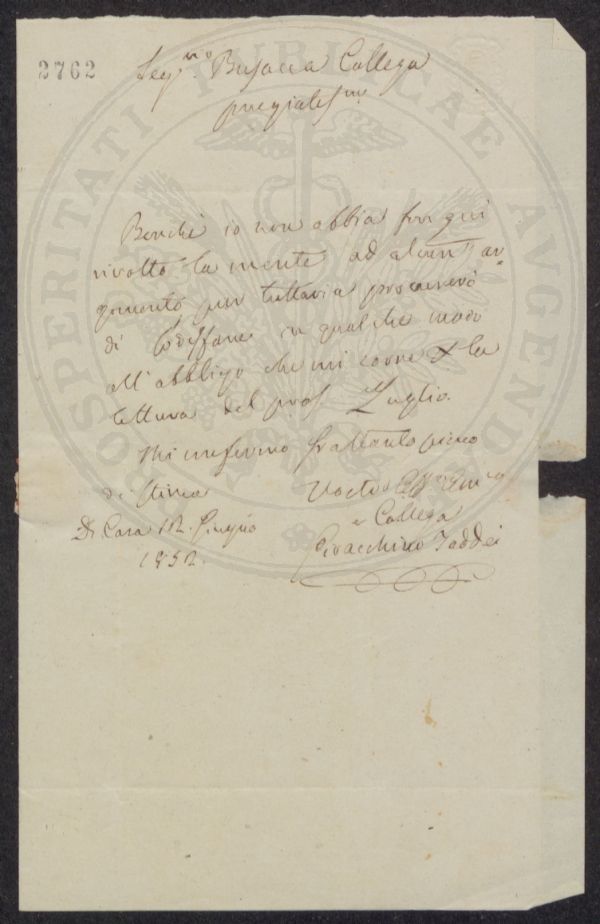 2762
Seg.rio Busacca Collega
pregiatis.mo
Benchè io non abbia fin quì
rivolto la mente ad alcun ar=
gomento pur tuttavia procurerò
di sodisfare in qualche modo
all'obbligo che mi corre x la
lettura del pross. Luglio.
Mi confermo frattanto pieno
di stima Vostro Aff. Am.co
e Collega
Di Casa 12. Giugno Gioacchino Taddei
1852.
PROSPERITATI PUBLICAE AVGENDAE